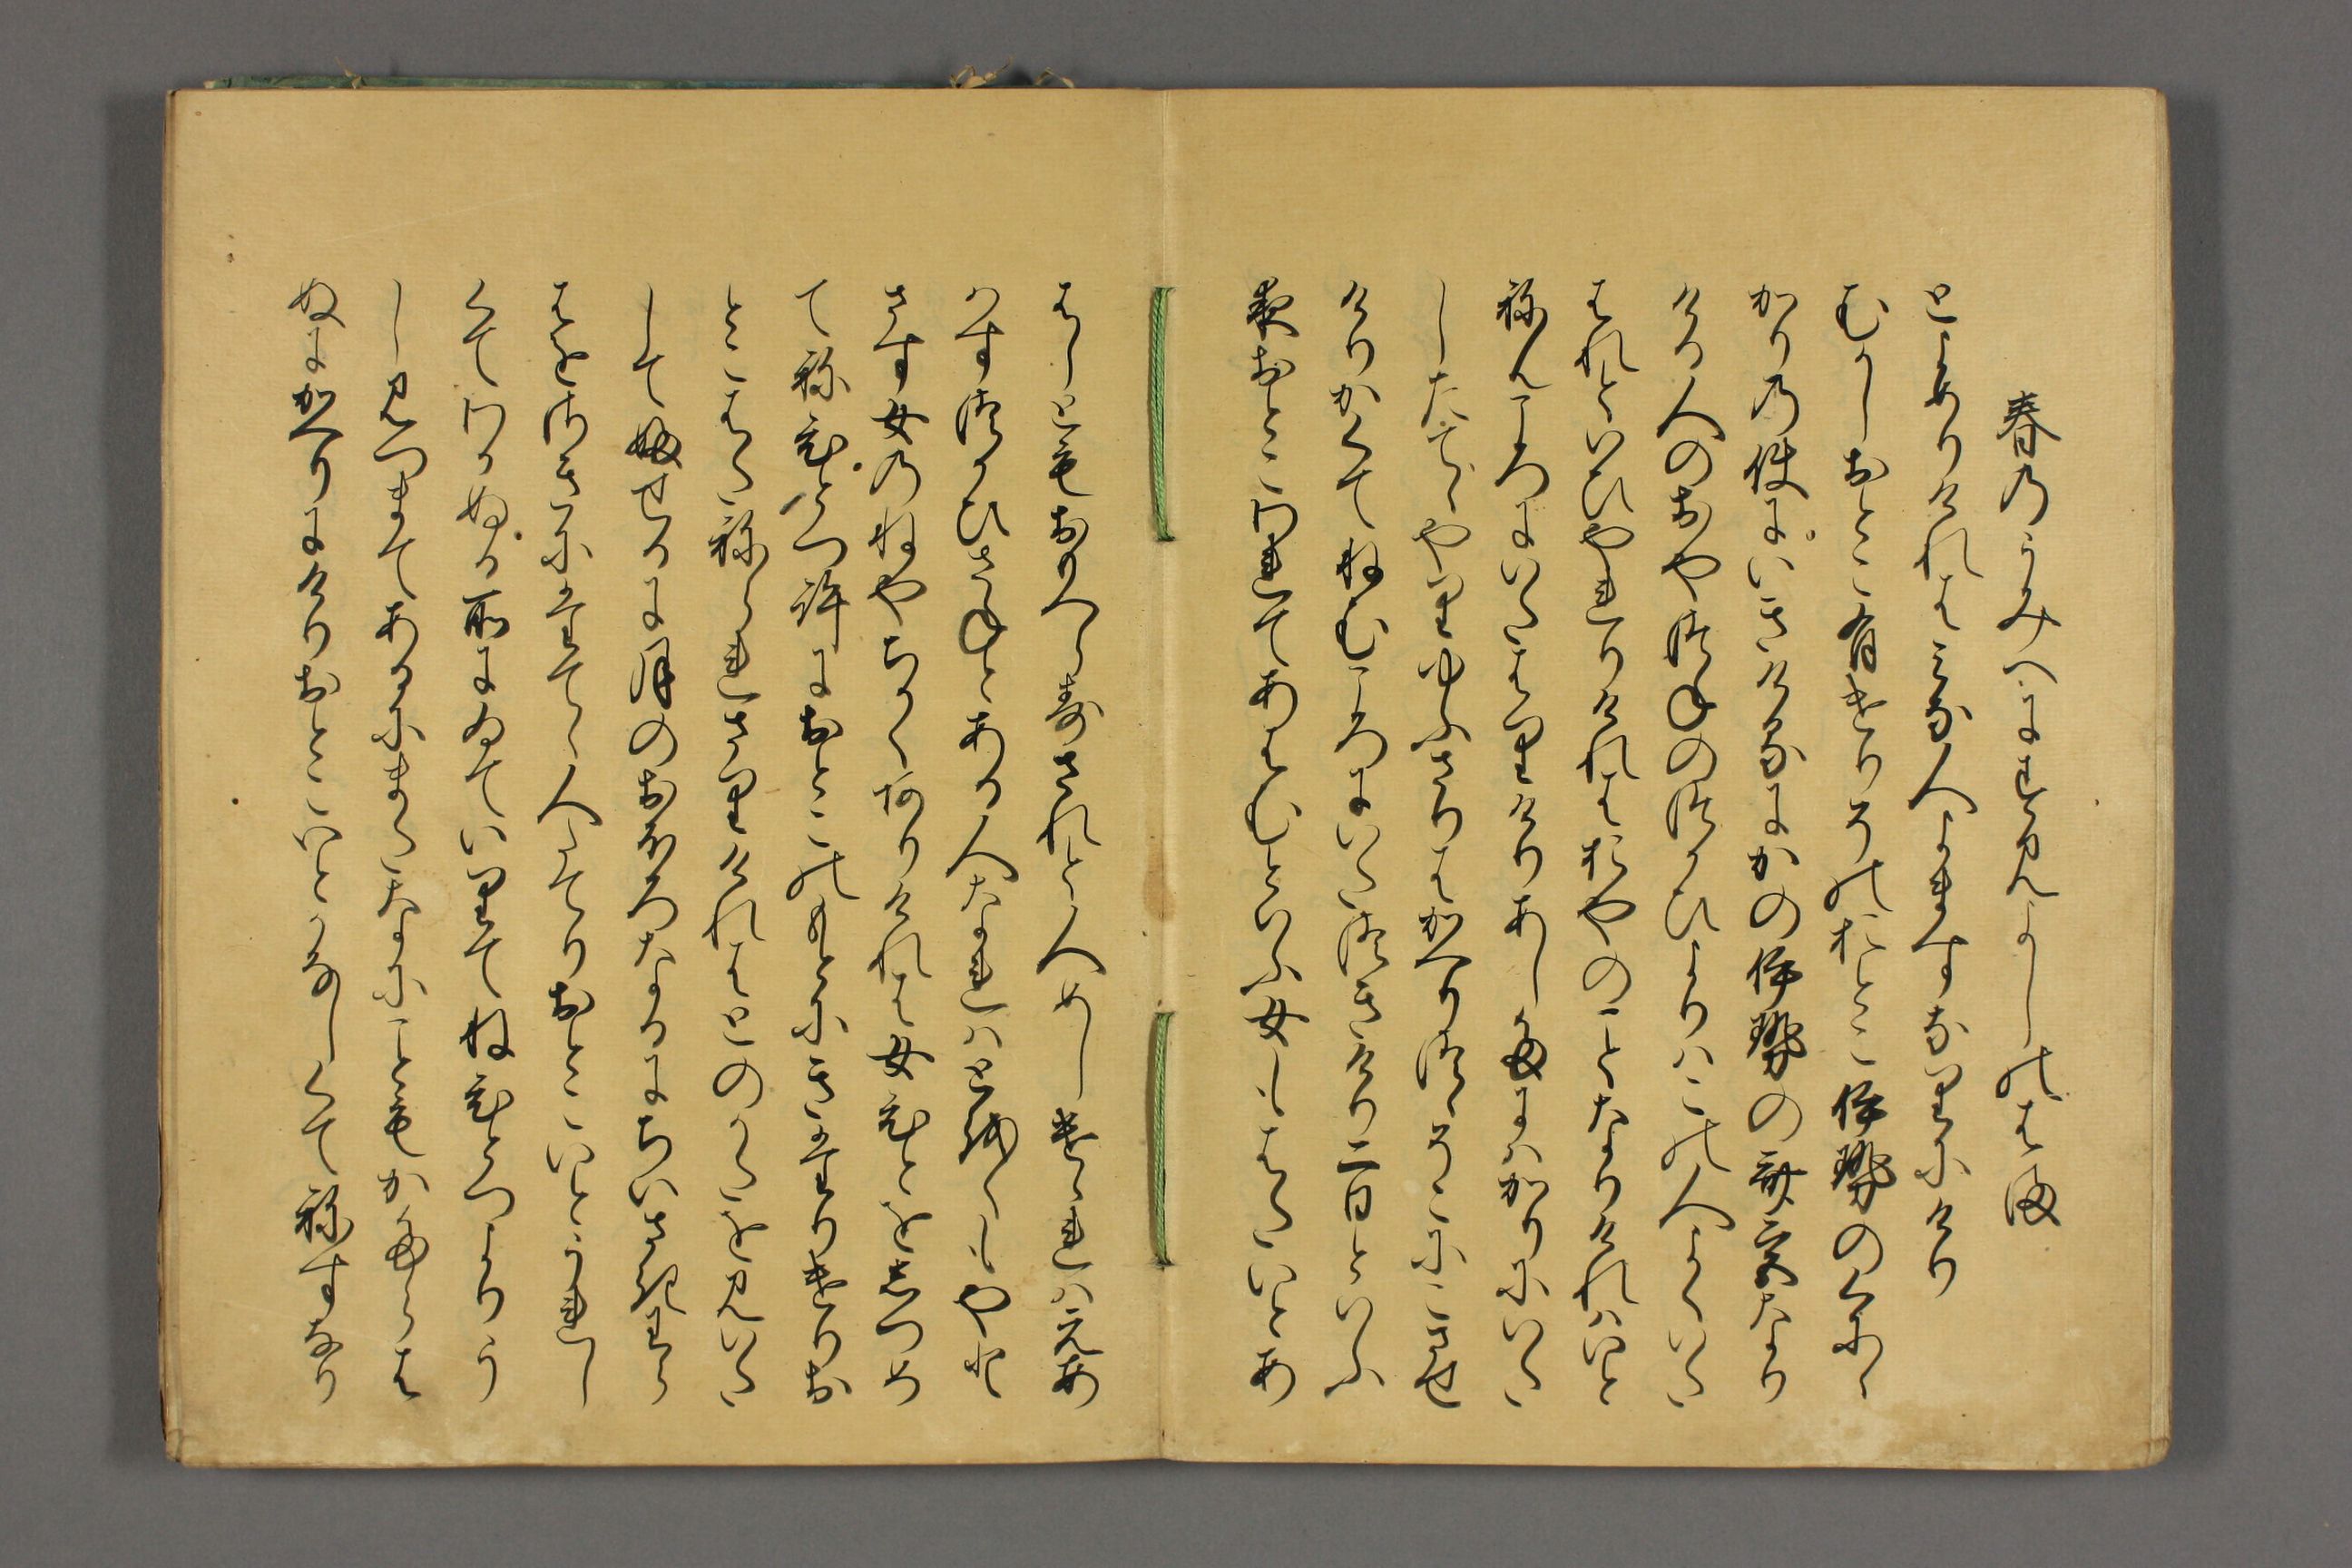 春のうみへにすみよしのはま
とよめりけれはみな人よますなりにけり
むかしおとこ有けりそのおとこ伊勢のくにゝ
かりの使にいきけるにかの伊勢の斎宮なり
ける人のおやつねのつかひよりはこの人よくいた
はれといひやれりけれはおやのことなりけれはいと
ねんころにいたはりけりあしたにはかりにいた
したてゝやりゆふさりはかへりつゝそこにこさせ
けりかくてねむころにいたつきけり二日といふ
夜おとこわれてあはむといふ女もはたいとあ
はしともおもへらすされと人めしけゝれはえあ
はすつかひさねとある人なれはとをくもやと
さす女のねやちかくありけれは女ひとをしつめ
てねひとつ許におとこのもとにきたりけりお
とこはたねられさりけれはとのかたを見いた
して臥せるに月のおほろなるにちいさきわら
はをさきにたてゝ人たてりおとこいとうれし
くてわかぬる所にゐていりてねひとつよりう
し見つまてあるにまたなにこともかたらは
ぬにかへりにけりおとこいとかなしくてねすなり